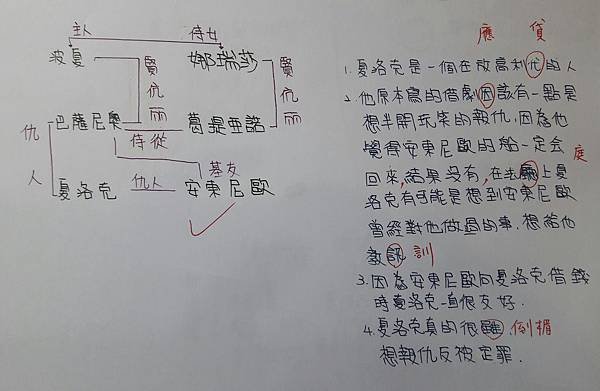 主人 侍女
波夏 娜瑞莎
賢伉儷
賢伉儷
巴薩尼奧 葛提亞諾
侍從
仇人
基友
夏洛克 仇人 安東尼歐
應 貸
1. 夏洛克是一個在放高利代的人
2. 他原本寫的借劇因該有一點是
想半開玩笑的報仇,因為他
覺得安東尼歐的船一定会
庭
回來,結果沒有,在法上夏
洛克有可能是想到安東尼歐
曾經對他做過的事.想給他
教訓
3. 因為安東尼歐向夏洛克借錢
時夏洛克一直很友好.
4. 夏洛克真的很 倒楣
想報仇反被定罪.